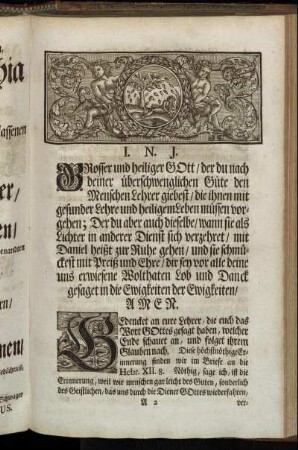 hia
assenen
er/
en/
en/
men/
Schwager
US.
I. N. J.
GRosser und heiliger GOtt / der du nach
deiner überschwenglichen Güte den
Menschen Lehrer giebest / die ihnen mit
gesunder Lehre und heiligem Leben müssen vor-
gehen; Der du aber auch dieselbe / wann sie als
Lichter in anderer Dienst sich verzehret / mit
Daniel heißt zur Ruhe gehen / und sie schmü-
ckest mit Preiß und Ehre / dir sey vor alle deine
uns erwiesene Wolthaten Lob und Danck
gesaget in die Ewigkeiten der Ewigkeiten /
AMEN.
GEdencket an eure Lehrer, die euch das
Wort GOttes gesagt haben, welcher
Ende schauet an, und folget ihrem
Glauben nach. Diese höchstnöthige Er-
innerung finden wir im Briefe an die
Hebr. XII. 8. Nöthig, sage ich, ist die
Erinnerung, weil wir menschen gar leicht des Guten, sonderlich
des Geistlichen, das uns durch die Diener GOttes wiederfahren,
A 2 ver-